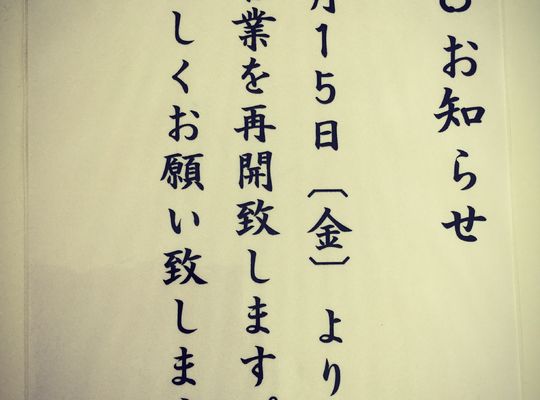 お知らせ
月15日〔金〕より
業を再開致します。
しくお願い致しま